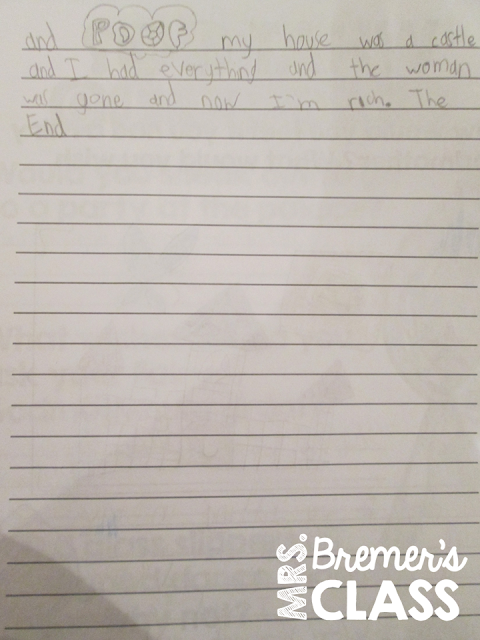 and POOF my house was a castle
and I had everything and the woman
was gone and now I'm rich. The
End
MRS. Bremer's
CLASS